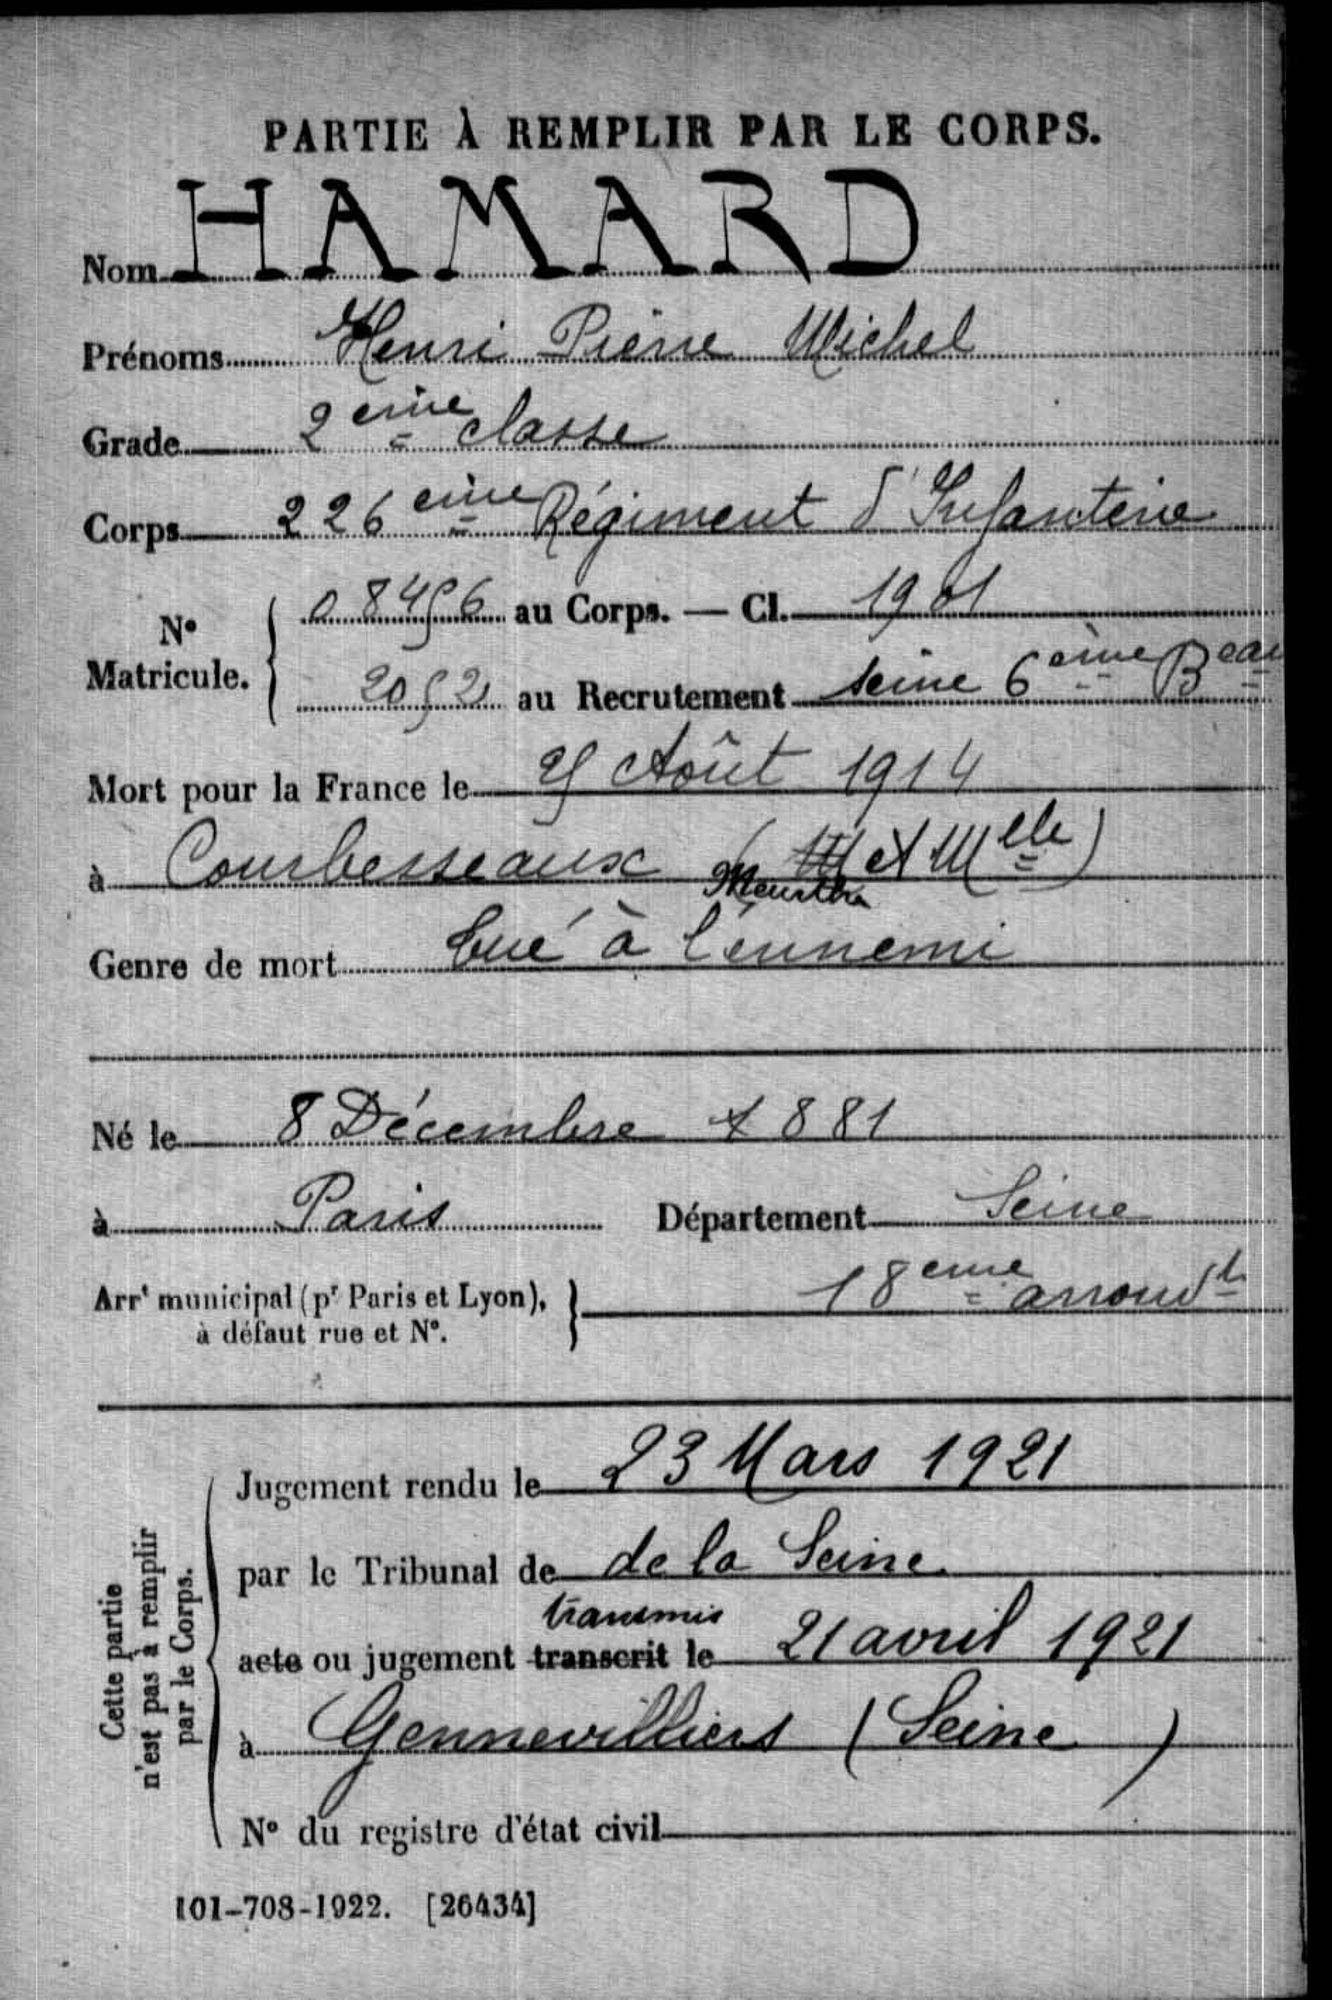 PARTIE À REMPLIR PAR LE CORPS.
Nom HAMARD
Prénoms Henri Pierre Michel
Grade 2eme classe
Corps 226eme Régiment d'Infanterie
N° Matricule. 08456 au Corps. — Cl. 1901
2052 au Recrutement Seine 6ème Beau
Mort pour la France le 25 Août 1914
à Courbesseaux (M et Mlle)
Meurthe
Genre de mort tué à l'ennemi
Né le 8 Décembre 1881
à Paris Département Seine
Arrt municipal (pr Paris et Lyon), 18eme arrondt
à défaut rue et N°.
Cette partie
n'est pas à remplir
par le Corps.
Jugement rendu le 23 Mars 1921
par le Tribunal de de la Seine
transmis
acte ou jugement transcrit le 21 avril 1921
à Gennevilliers (Seine)
N° du registre d'état civil
101-708-1922. [26434]